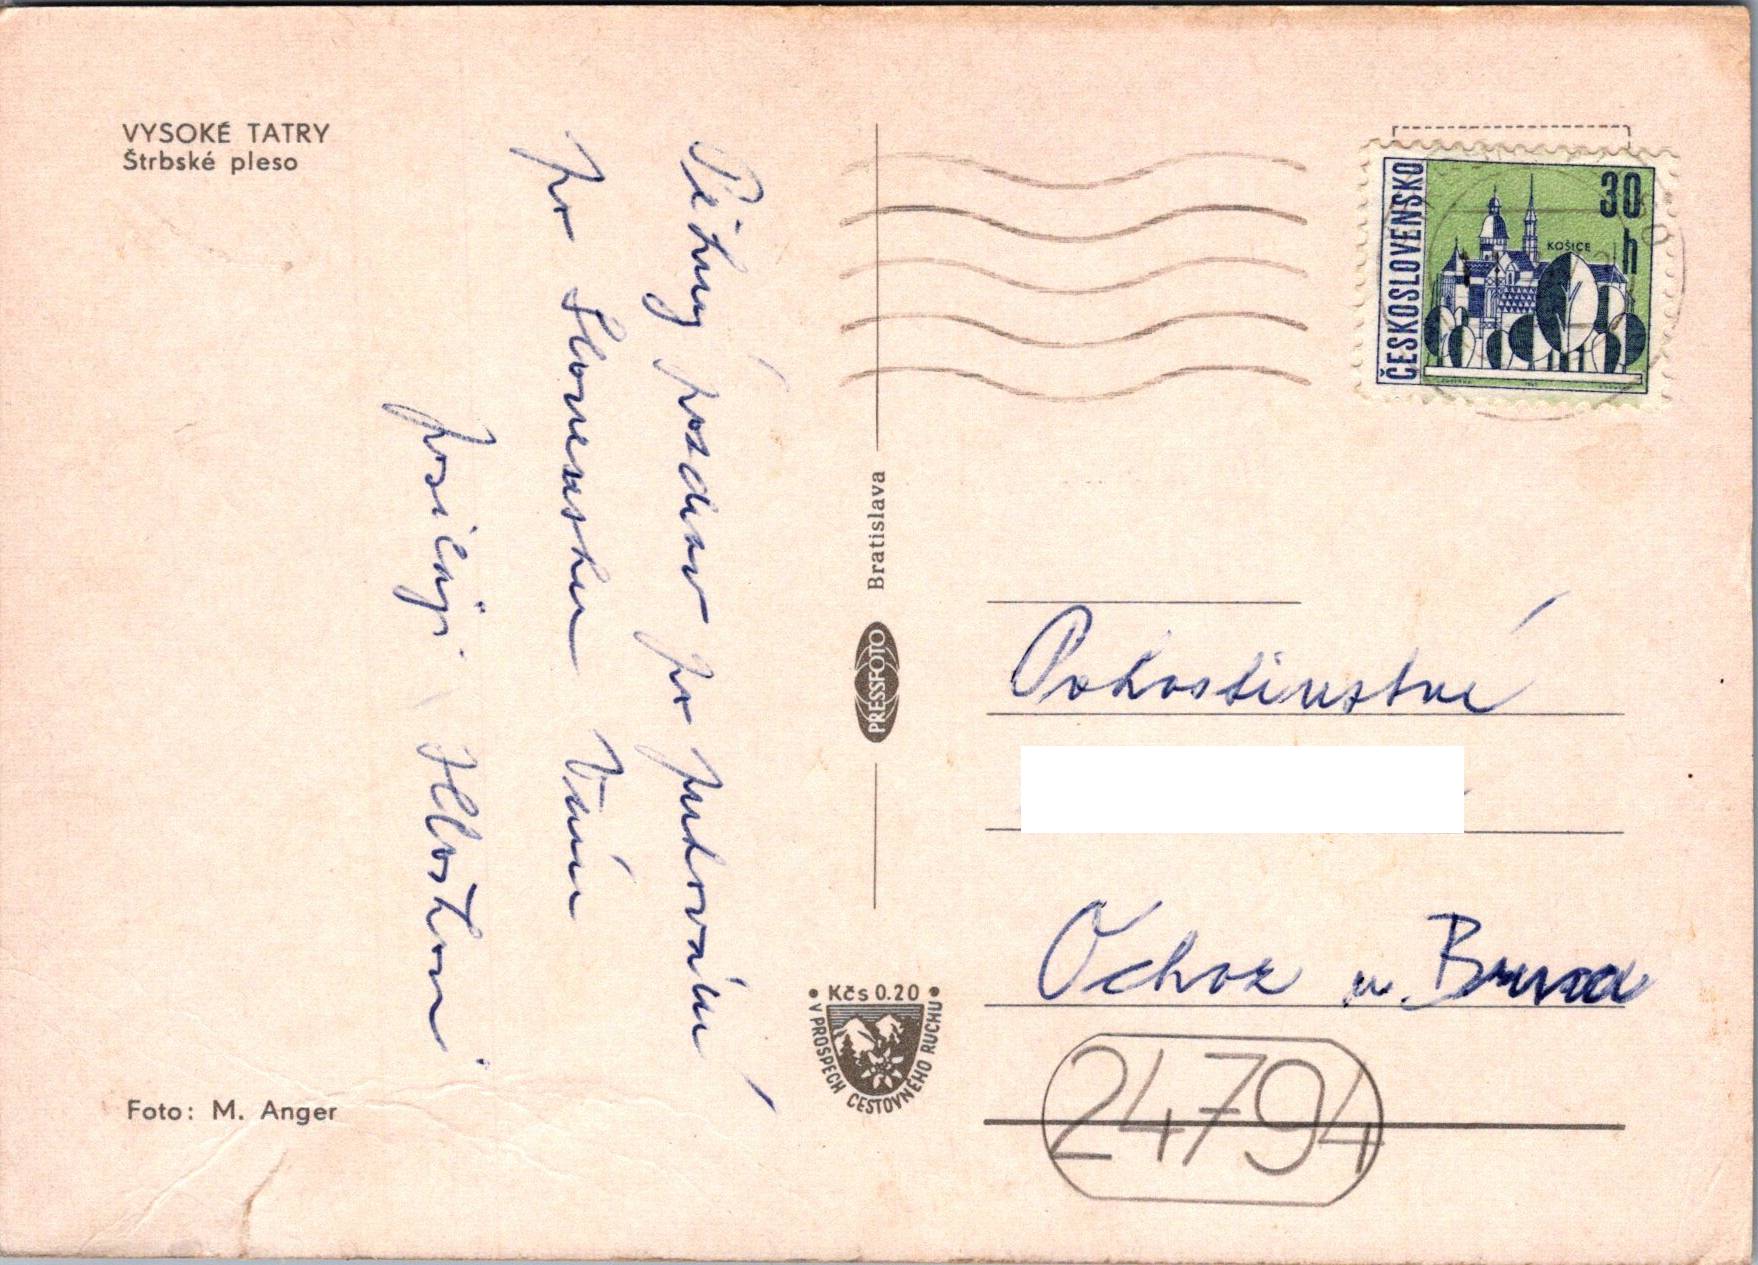 VYSOKÉ TATRY
Štrbské pleso
Pěkný pozdrav po putování
po Slovensku Vám
posílají
Foto: M. Anger
Bratislava
PRESSFOTO
• Kčs 0.20 •
V PROSPECH CESTOVNÉHO RUCHU
ČESKOSLOVENSKO
30
h
KOŠICE
Pohostinství
Ochoz u Brna
24794